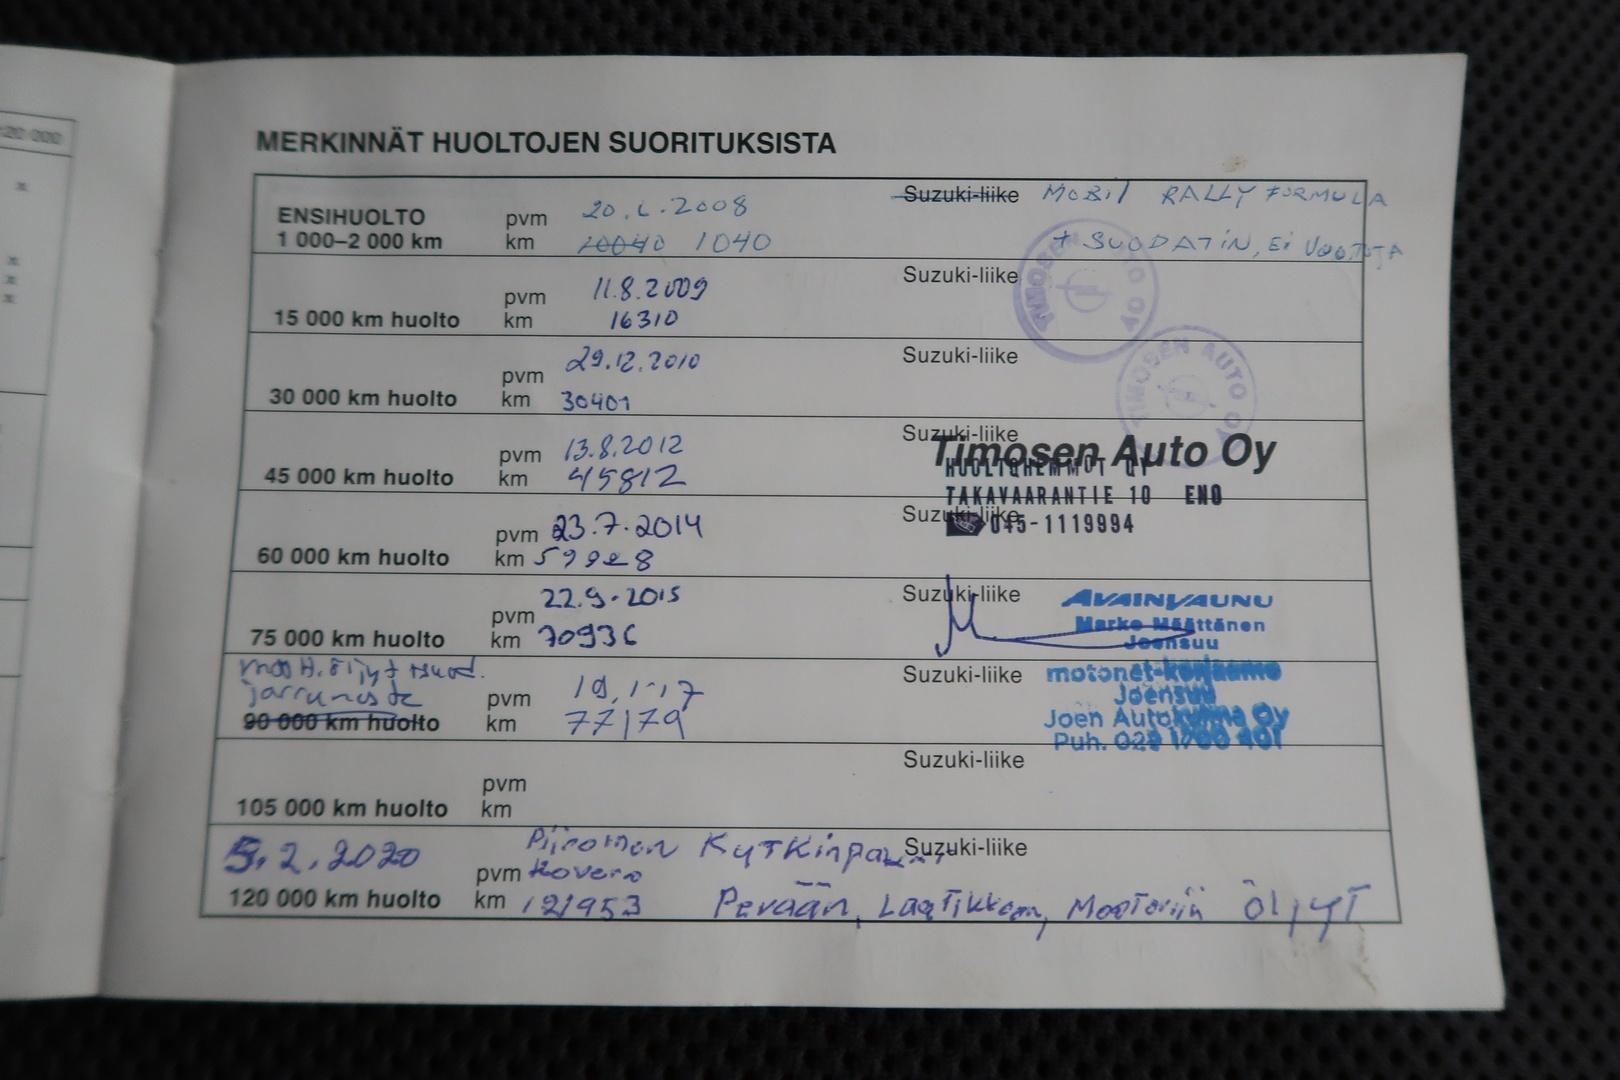 20 000
x
x
x
x
MERKINNÄT HUOLTOJEN SUORITUKSISTA
ENSIHUOLTO
1 000–2 000 km
pvm 20.6.2008
km 10040 1040
Suzuki-liike MOBil RALLY FORMULA
+ SUODATIN, Ei VUOTOJA
15 000 km huolto
pvm 11.8.2009
km 16310
Suzuki-liike
TIMOSEN AUTO OY
30 000 km huolto
pvm 29.12.2010
km 30401
Suzuki-liike
TIMOSEN AUTO OY
45 000 km huolto
pvm 13.8.2012
km 45812
Suzuki-liike
Timosen Auto Oy
60 000 km huolto
pvm 23.7.2014
km 59928
Suzuki-liike
TAKAVAARANTIE 10 ENO
045-1119994
75 000 km huolto
pvm 22.9.2015
km 70936
Suzuki-liike
AVAINVAUNU
Marko Määttänen
Joensuu
moott. öljyt
jarruneste
90 000 km huolto
pvm 19.1.17
km 77179
Suzuki-liike
motonet-korjaamo
Joensuu
Joen Autokulma Oy
Puh.
105 000 km huolto
pvm
km
Suzuki-liike
5.2.2020
120 000 km huolto
Piiroinen Kytkinpaja
Suzuki-liike
pvm Kovero
km 121953 Perään, Laatikkoon, Moottoriin öljyt